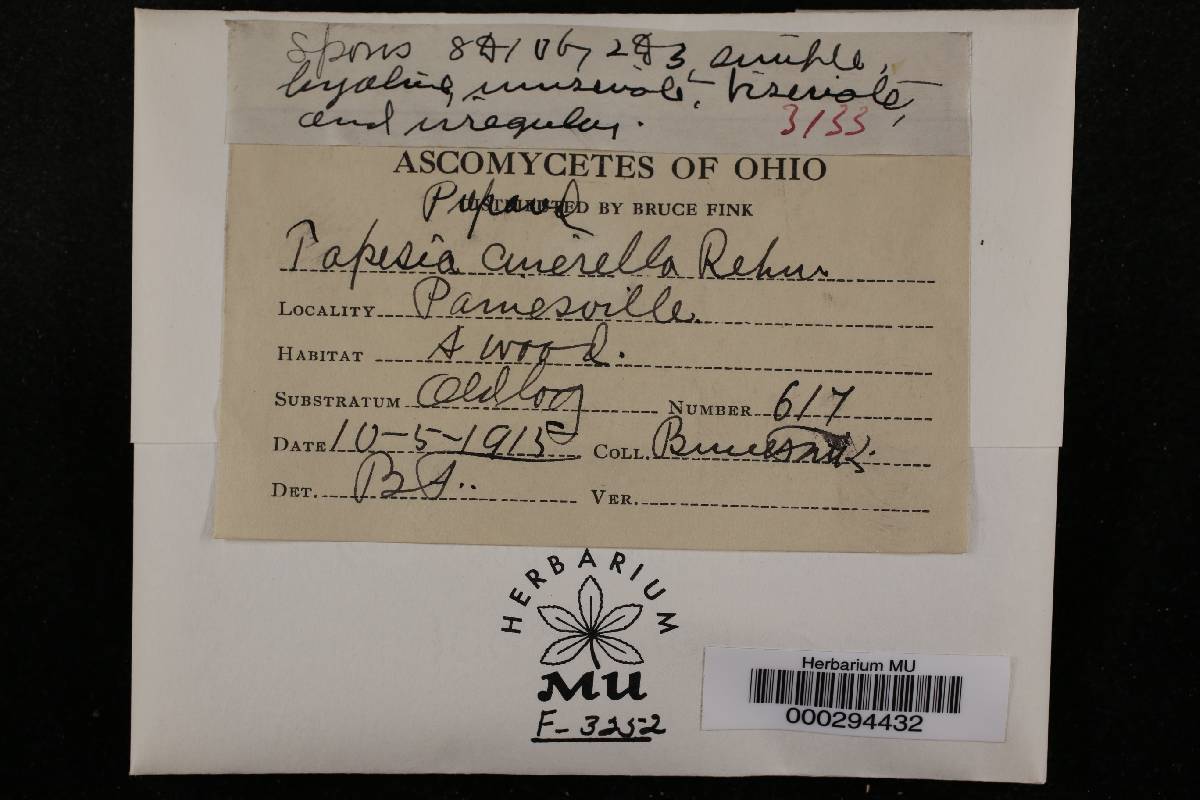 Spores 8 to 10 by 2 to 3, simple,
hyaline, uniseriate, biseriate,
and irregular. 3133
ASCOMYCETES OF OHIO
Prepared
DISTRIBUTED BY BRUCE FINK
Tapesia cinerella Rehm
LOCALITY Painesville.
HABITAT A wood.
SUBSTRATUM Old log NUMBER 617
DATE 10-5-1915 COLL. Bruce Fink
DET. B.F. VER.
HERBARIUM
MU
F-3252
Herbarium MU
000294432